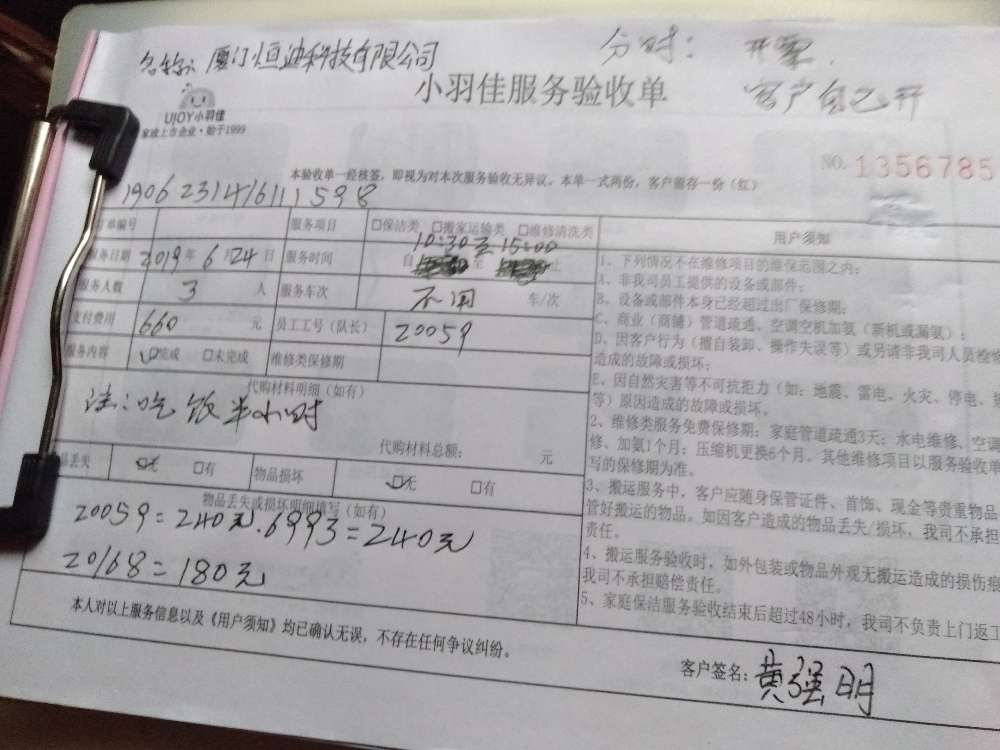 名称：厦门恒迪科技有限公司
分时： 开票.
客户自己开
UJOY小羽佳
家政上市企业·始于1999
小羽佳服务验收单
NO. 1356785
本验收单一经核签，即视为对本次服务验收无异议。本单一式两份，客户留存一份（红）
单编号 服务项目 □保洁类 □搬家运输类 □维修清洗类
服务日期 2019年6月24日 服务时间 自 10:30至15:00 止
服务人数 3 人 服务车次 不用 车/次
支付费用 660 元 员工工号（队长） 20059
服务内容 ☑完成 □未完成 维修类保修期
代购材料明细（如有）
注：吃饭半小时
代购材料总额： 元
品丢失 ☑无 □有 物品损坏 ☑无 □有
物品丢失或损坏明细填写（如有）
20059=240元.6993=240元
20168=180元
本人对以上服务信息以及《用户须知》均已确认无误，不存在任何争议纠纷。
用户须知
1、下列情况不在维修项目的维保范围之内：
A、非我司员工提供的设备或部件；
B、设备或部件本身已经超过出厂保修期；
C、商业（商铺）管道疏通、空调空机加氨（新机或漏氨）；
D、因客户行为（擅自装卸、操作失误等）或另请非我司人员检修
造成的故障或损坏；
E、因自然灾害等不可抗拒力（如：地震、雷电、火灾、停电、
等）原因造成的故障或损坏。
2、维修类服务免费保修期：家庭管道疏通3天；水电维修、空调
修、加氨1个月；压缩机更换6个月。其他维修项目以服务验收单
写的保修期为准。
3、搬运服务中，客户应随身保管证件、首饰、现金等贵重物品
管好搬运的物品。如因客户造成的物品丢失/损坏，我司不承担
责任。
4、搬运服务验收时，如外包装或物品外观无搬运造成的损伤痕
我司不承担赔偿责任。
5、家庭保洁服务验收结束后超过48小时，我司不负责上门返工
客户签名：黄强明